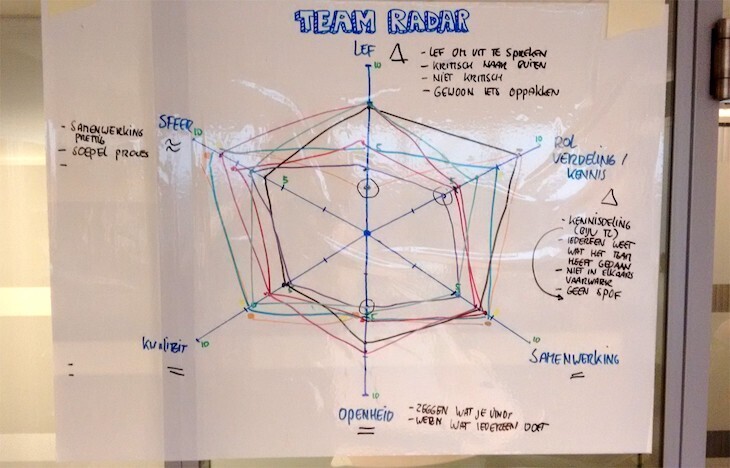 TEAM RADAR
LEF Δ
- LEF OM UIT TE SPREKEN
- KRITISCH NAAR BUITEN
- NIET KRITISCH
- GEWOON IETS OPPAKKEN
10
SFEER
≈
10
- SAMENWERKING
PRETTIG
- SOEPEL PROCES
-
10
ROL
VERDELING /
KENNIS
Δ
- KENNISDELING
(BIJV TL)
- IEDEREEN WEET
WAT HET TEAM
HEEFT GEDAAN
- NIET IN ELKAARS
VAARWATER
- GEEN SPOF
5
5
5
KWALITEIT
=
10
10
SAMENWERKING
=
10
OPENHEID
=
- ZEGGEN WAT JE VINDT
- WETEN WAT IEDEREEN DOET